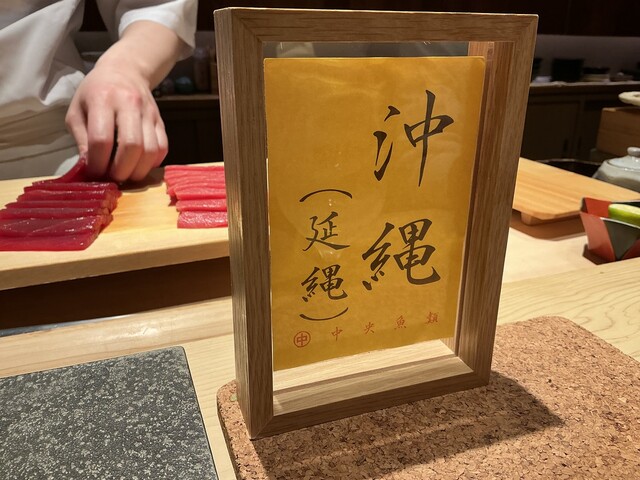 沖縄
(延縄)
中 中央魚類